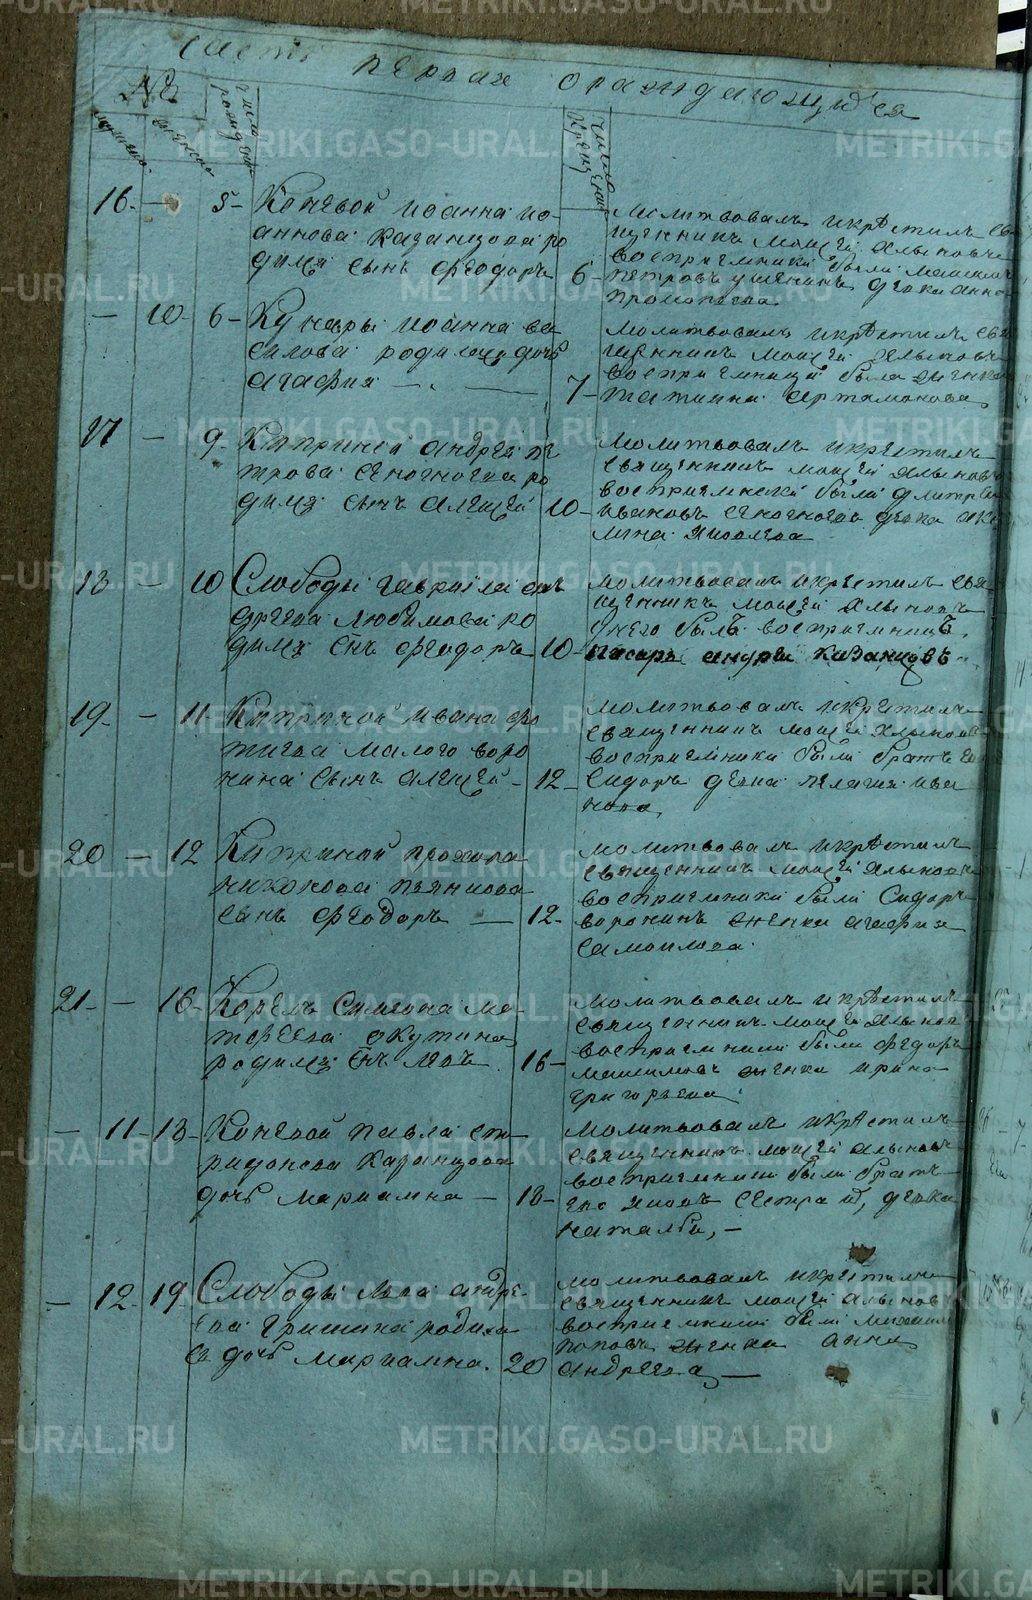 часть первая о раждающихся
№
мужеска
женска
число
рожден
число
крещения
16 — 5 Коневой иоанна ио-
аннова казанцова ро
дился сынъ феодоръ
6 молитвовалъ и крѣстилъ свя
щенникъ моисей хлыновъ
воспрiемники были максимъ
петровъ девка анна
прокопьева
— 10 6 иоанна ва
силова родилась дочь
агафия
7 молитвовалъ и крѣстилъ свя
щенникъ моисей хлыновъ
воспрiемницей была женка
татиана артамонова
17 — 9 Киприной андрея пе
трова сеногноева ро
дился сынъ алексей
10 молитвовалъ и крестилъ
священникъ моисей хлыновъ
воспрiемники были дмитрей
ивановъ сеногноевъ девка аку
лина яковлева
18 — 10 Слободы гавриила ан
дреева любимова ро
дился сынъ феодоръ
10 молитвовалъ и крѣстилъ свя
щенникъ моисей хлыновъ
у него былъ воспрiемникъ
писарь андрей казанцовъ
19 — 11 Киприной ивана
малого воро
нина сынъ алексей
12 молитвовалъ и крѣстилъ
священникъ моисей хлыновъ
воспрiемники были братъ его
сидоръ девка пелагия ива
нова
20 — 12 Киприной прохора
никонова пьянкова
сынъ феодоръ —
12 молитвовалъ и крѣстилъ
священникъ моисей хлыновъ
воспрiемники были сидоръ
воронинъ женка агафия
самоилова
21 — 16 симеона ма-
тфеева окулина
родился сынъ
16 молитвовалъ и крѣстилъ
священникъ моисей хлынов
воспрiемники были федоръ
максимовъ женка ирина
григорьева
— 11 18 Коневой павла спи
ридонова казанцова
дочь мариамна —
18 молитвовалъ и крѣстилъ
священникъ моисей хлыновъ
воспрiемники были братъ
его яковъ сестра девка
наталья, —
— 12 19 Слободы льва андре
ева гришина родила
ся дочь мариамна.
20 молитвовалъ и крѣстилъ
священникъ моисей хлынов
воспрiемники были михаилъ
поповъ женка анна
андреева —
METRIKI.GASO-URAL.RU